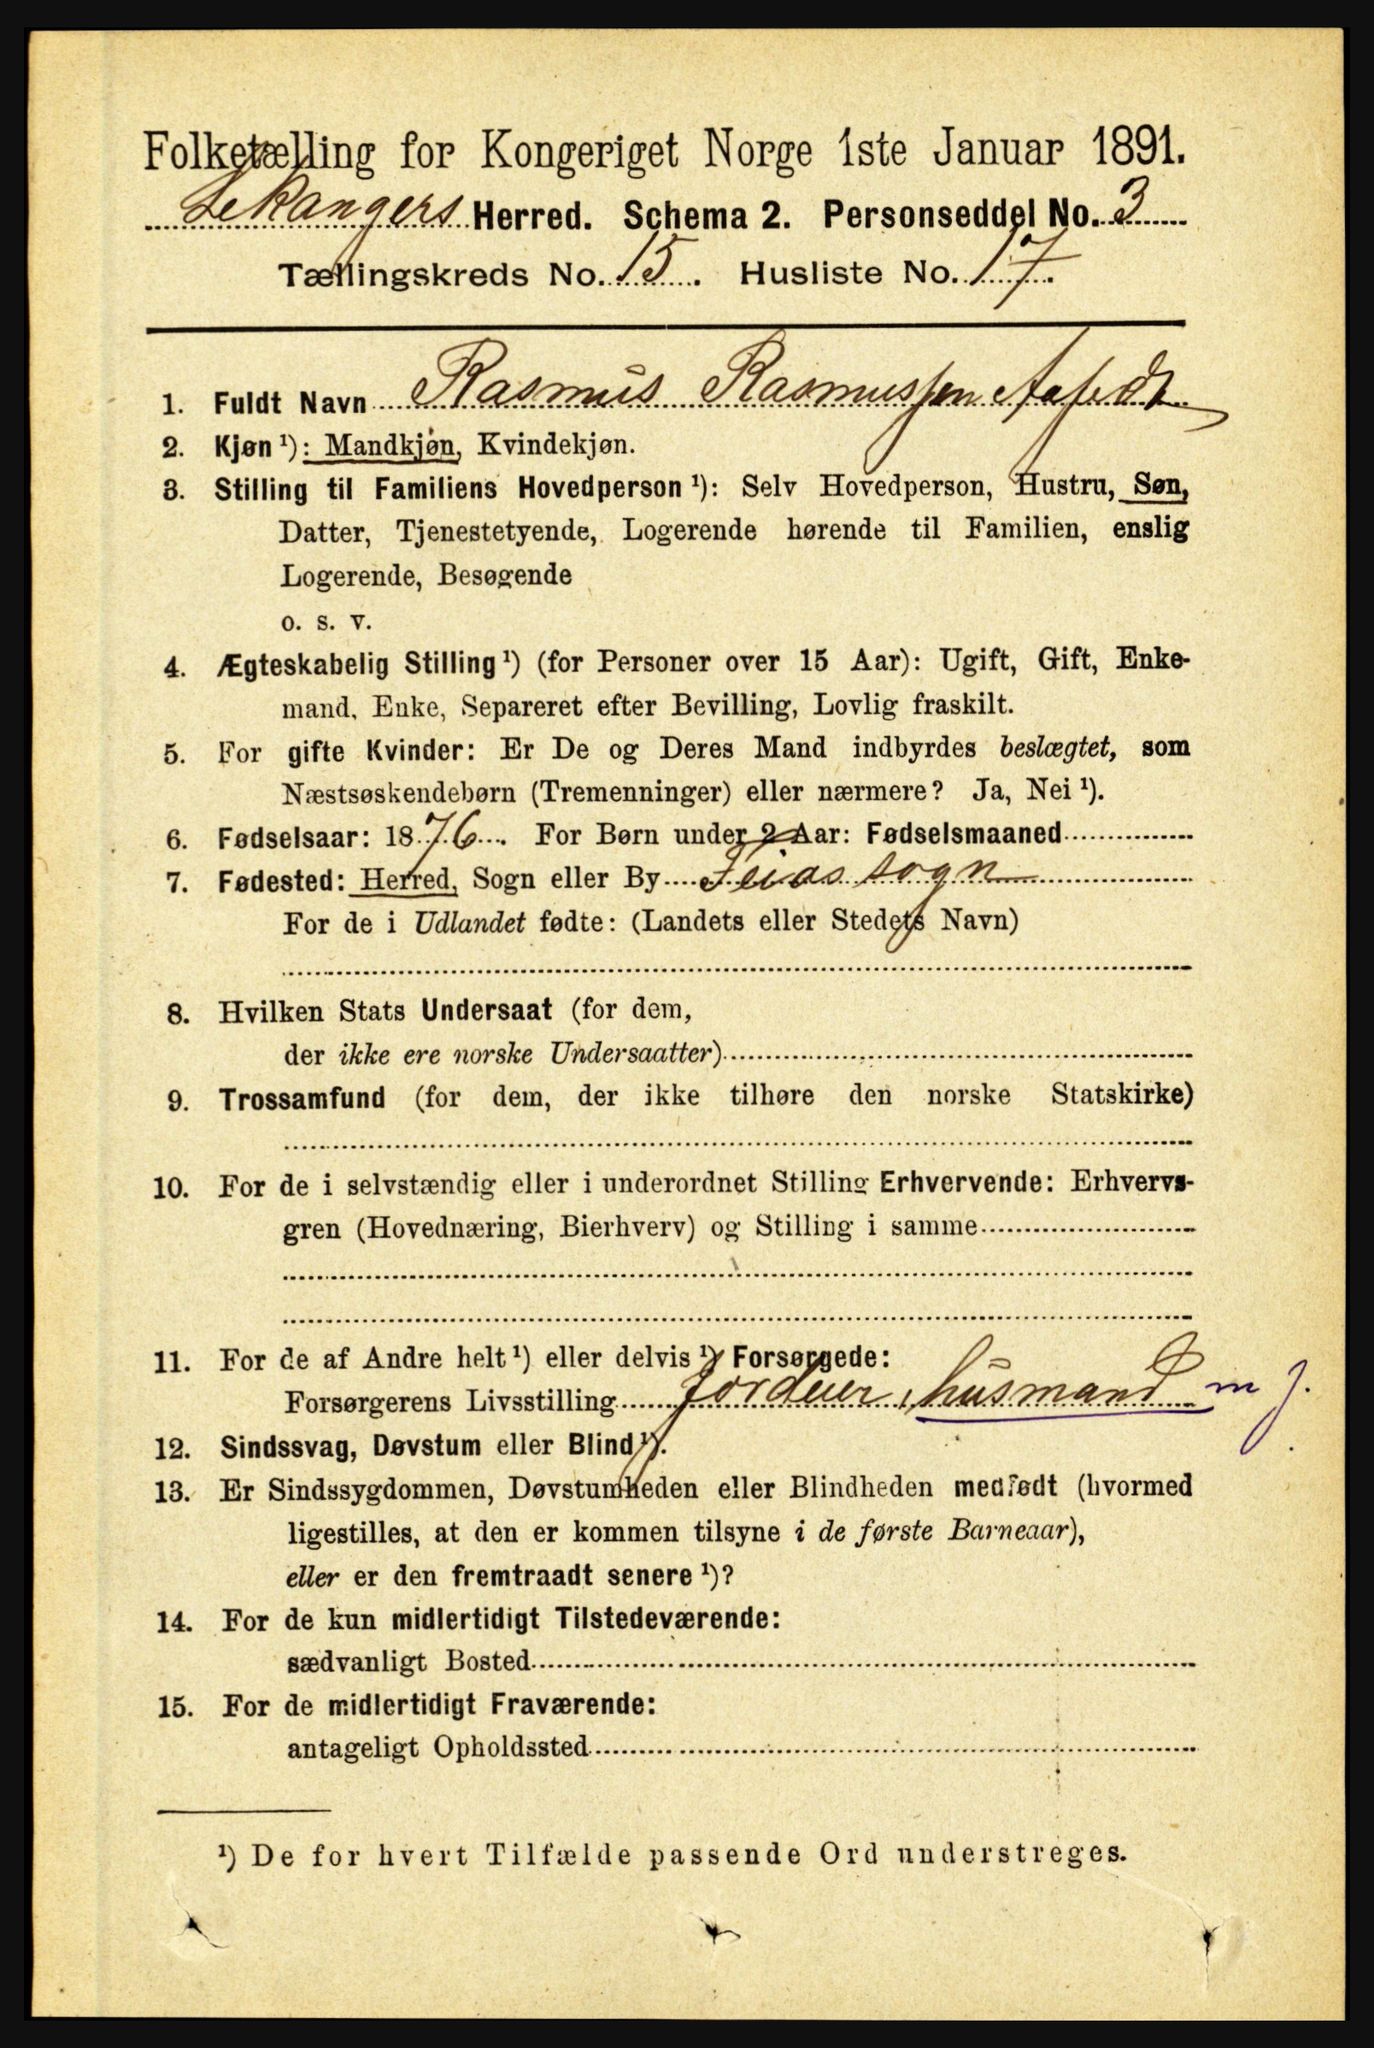 Folketælling for Kongeriget Norge 1ste Januar 1891.
Lekangers Herred. Schema 2. Personseddel No. 3
Tællingskreds No. 15. Husliste No. 17.
1. Fuldt Navn Rasmus Rasmussen Aafedt
2. Kjøn ¹): Mandkjøn, Kvindekjøn.
3. Stilling til Familiens Hovedperson ¹): Selv Hovedperson, Hustru, Søn,
Datter, Tjenestetyende, Logerende hørende til Familien, enslig
Logerende, Besøgende
o. s. v.
4. Ægteskabelig Stilling ¹) (for Personer over 15 Aar): Ugift, Gift, Enke-
mand, Enke, Separeret efter Bevilling, Lovlig fraskilt.
5. For gifte Kvinder: Er De og Deres Mand indbyrdes beslægtet, som
Næstsøskendebørn (Tremenninger) eller nærmere? Ja, Nei ¹).
6. Fødselsaar: 1876. For Børn under 2 Aar: Fødselsmaaned
7. Fødested: Herred, Sogn eller By Feios sogn
For de i Udlandet fødte: (Landets eller Stedets Navn)
8. Hvilken Stats Undersaat (for dem,
der ikke ere norske Undersaatter)
9. Trossamfund (for dem, der ikke tilhøre den norske Statskirke)
10. For de i selvstændig eller i underordnet Stilling Erhvervende: Erhvervs-
gren (Hovednæring, Bierhverv) og Stilling i samme
11. For de af Andre helt ¹) eller delvis ¹) Forsørgede:
Forsørgerens Livsstilling Jordeier, husmand m j.
12. Sindssvag, Døvstum eller Blind ¹).
13. Er Sindssygdommen, Døvstumheden eller Blindheden medfødt (hvormed
ligestilles, at den er kommen tilsyne i de første Barneaar),
eller er den fremtraadt senere ¹)?
14. For de kun midlertidigt Tilstedeværende:
sædvanligt Bosted
15. For de midlertidigt Fraværende:
antageligt Opholdssted
¹) De for hvert Tilfælde passende Ord understreges.